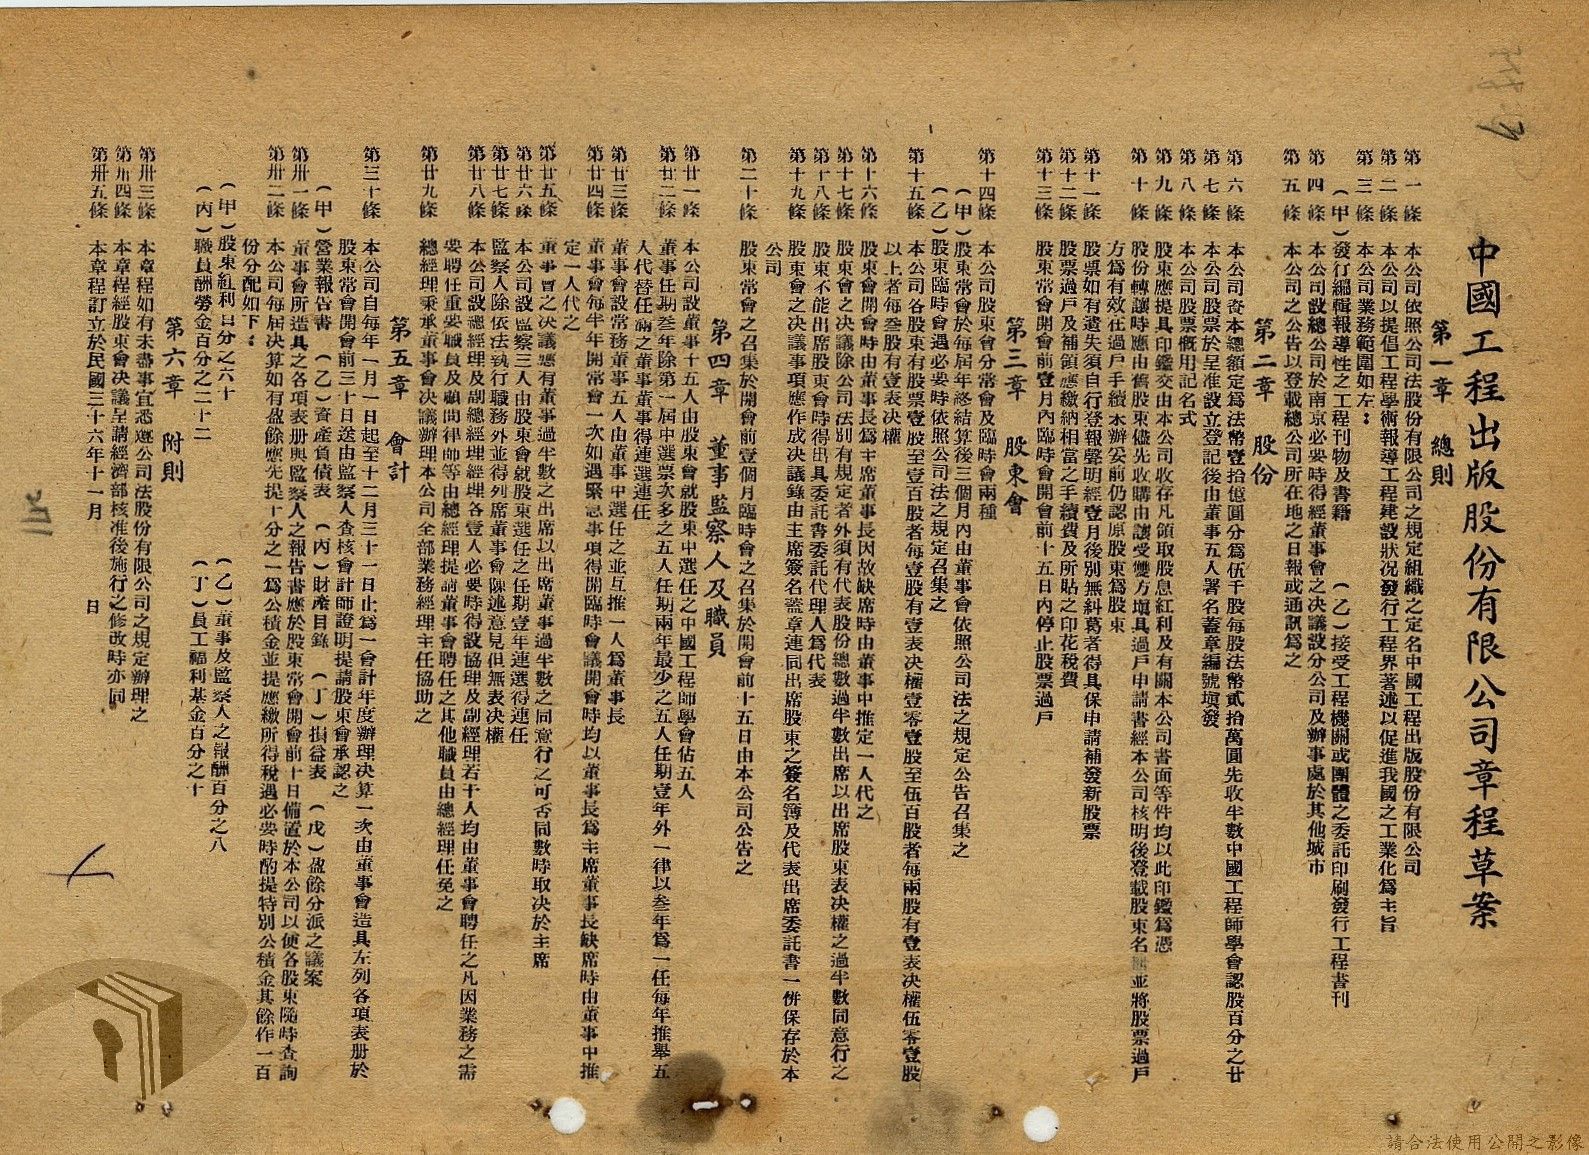 中國工程出版股份有限公司章程草案
第一章 總則
第一條 本公司依照公司法股份有限公司之規定組織之定名中國工程出版股份有限公司
第二條 本公司以提倡工程學術報導工程建設狀况發行工程界著述以促進我國之工業化爲主旨
第三條 本公司業務範圍如左：
（甲）發行編輯報導性之工程刊物及書籍 （乙）接受工程機關或團體之委託印刷發行工程書刊
第四條 本公司設總公司於南京必要時得經董事會之决議設分公司及辦事處於其他城市
第五條 本公司之公告以登載總公司所在地之日報或通訊爲之
第二章 股份
第六條 本公司資本總額定爲法幣壹拾億圓分爲伍千股每股法幣貳拾萬圓先收半數中國工程師學會認股百分之廿
第七條 本公司股票於呈准設立登記後由董事五人署名蓋章編號塡發
第八條 本公司股票概用記名式
第九條 股東應提具印鑑交由本公司收存凡領取股息紅利及有關本公司書面等件均以此印鑑爲憑
第十條 股份轉讓時應由舊股東儘先收購由讓受雙方塡具過戶申請書經本公司核明後登載股東名 並將股票過戶
方爲有效在過戶手續未辦妥前仍認原股東爲股東
第十一條 股票如有遺失須自行登報聲明經壹月後別無糾葛者得具保申請補發新股票
第十二條 股票過戶及補領應繳納相當之手續費及所貼之印花稅費
第十三條 股東常會開會前壹月內臨時會開會前十五日內停止股票過戶
第三章 股東會
第十四條 本公司股東會分常會及臨時會兩種
（甲）股份常會於每屆年終結算後三個月內由董事會依照公司法之規定公告召集之
（乙）股東臨時會遇必要時依照公司法之規定召集之
第十五條 本公司各股東有股票壹股至壹百股者每壹股有壹表决權壹零壹股至伍百股者每兩股有壹表决權伍零壹股
以上者每叁股有壹表决權
第十六條 股東會開會時由董事長爲主席董事長因故缺席時由董事中推定一人代之
第十七條 股東會之决議除公司法別有規定者外須有代表股份總數過半數出席以出席股東表决權之過半數同意行之
第十八條 股東不能出席股東會時得出具委託書委託代理人爲代表
第十九條 股東會之决議事項應作成决議錄由主席簽名蓋章連同出席股東之簽名簿及代表出席委託書一併保存於本
公司
第二十條 股東常會之召集於開會前壹個月臨時會之召集於開會前十五日由本公司公告之
第四章 董事監察人及職員
第廿一條 本公司設董事十五人由股東會就股東中選任之中國工程師學會佔五人
第廿二條 董事任期叁年除第一屆中選票次多之五人任期兩年最少之五人任期壹年外一律以叁年爲一任每年推舉五
人代替任滿之董事董事得連選連任
第廿三條 董事會設常務董事五人由董事中選任之並互推一人爲董事長
第廿四條 董事會每半年開常會一次如遇緊急事項得開臨時會議開會時均以董事長爲主席董事長缺席時由董事中推
定一人代之
第廿五條 董事會之决議應有董事過半數之出席以出席董事過半數之同意行之可否同數時取决於主席
第廿六條 本公司設監察三人由股東會就股東選任之任期壹年連選得連任
第廿七條 監察人除依法執行職務外並得列席董事會陳述意見但無表决權
第廿八條 本公司設總經理及副總經理經理各壹人必要時得設協理及副經理若干人均由董事會聘任之凡因業務之需
要聘任重要職員及顧問律師等由總經理提請董事會聘任之其他職員由總經理任免之
第廿九條 總經理秉承董事會决議辦理本公司全部業務經理主任協助之
第五章 會計
第三十條 本公司自每年一月一日起至十二月三十一日止爲一會計年度辦理决算一次由董事會造具左列各項表册於
股東常會開會前三十日送由監察人查核會計師證明提請股東會承認之
（甲）營業報告書 （乙）資產負債表 （丙）財產目錄 （丁）損益表 （戊）盈餘分派之議案
第卅一條 董事會所造具之各項表册與監察人之報告書應於股東常會開會前十日備置於本公司以便各股東隨時查詢
第卅二條 本公司每屆决算如有盈餘應先提十分之一爲公積金並提應繳所得稅遇必要時酌提特別公積金其餘作一百
份分配如下：
（甲）股東紅利百分之六十 （乙）董事及監察人之報酬百分之八
（丙）職員酬勞金百分之二十二 （丁）員工福利基金百分之十
第六章 附則
第卅三條 本章程如有未盡事宜悉遵公司法股份有限公司之規定辦理之
第卅四條 本章程經股東會决議呈請經濟部核准後施行之修改時亦同
第卅五條 本章程訂立於民國三十六年十一月 日
請合法使用公開之影像